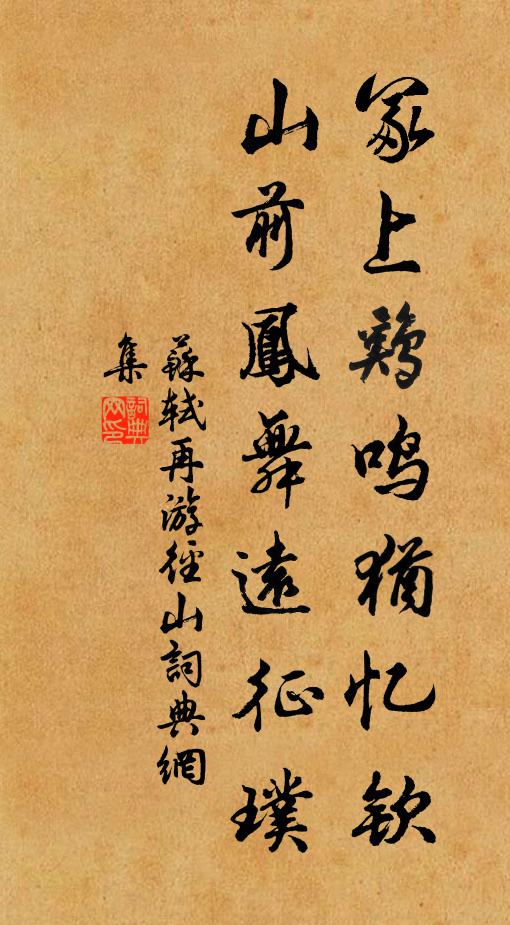 冢上鷄鳴猶忆欽
山前鳳舞遠征璞
蘇軾再游徑山詞典網
集
詞典
网印